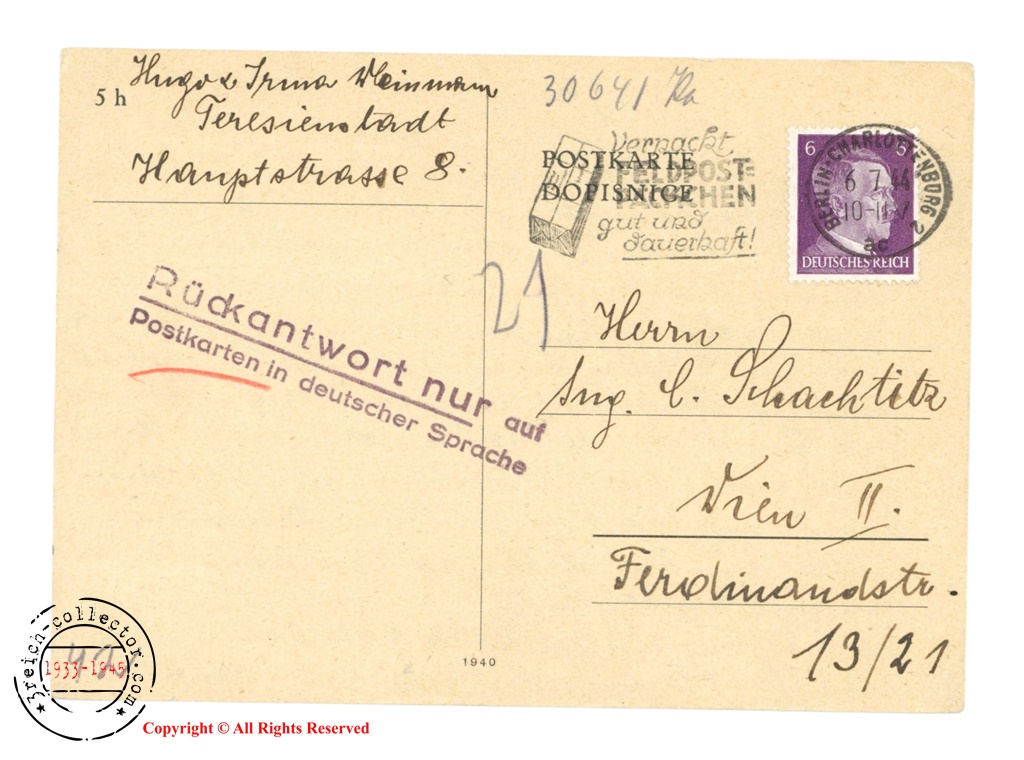 Hugo & Irma Weinmann
5 h
Teresienstadt
Hauptstrasse 8.
30641 Ka
Verpackt
FELDPOST=
PÄCKCHEN
gut und
dauerhaft!
POSTKARTE
DOPISNICE
6 6
DEUTSCHES REICH
BERLIN-CHARLOTTENBURG 2
6 7.44
10-11 V
ac
21
Rückantwort nur auf
Postkarten in deutscher Sprache
Herrn
Ing. C. Schachtitz
Wien II.
Ferdinandstr.
13/21
1940
3reich-collector.com
1933-1945
Copyright © All Rights Reserved